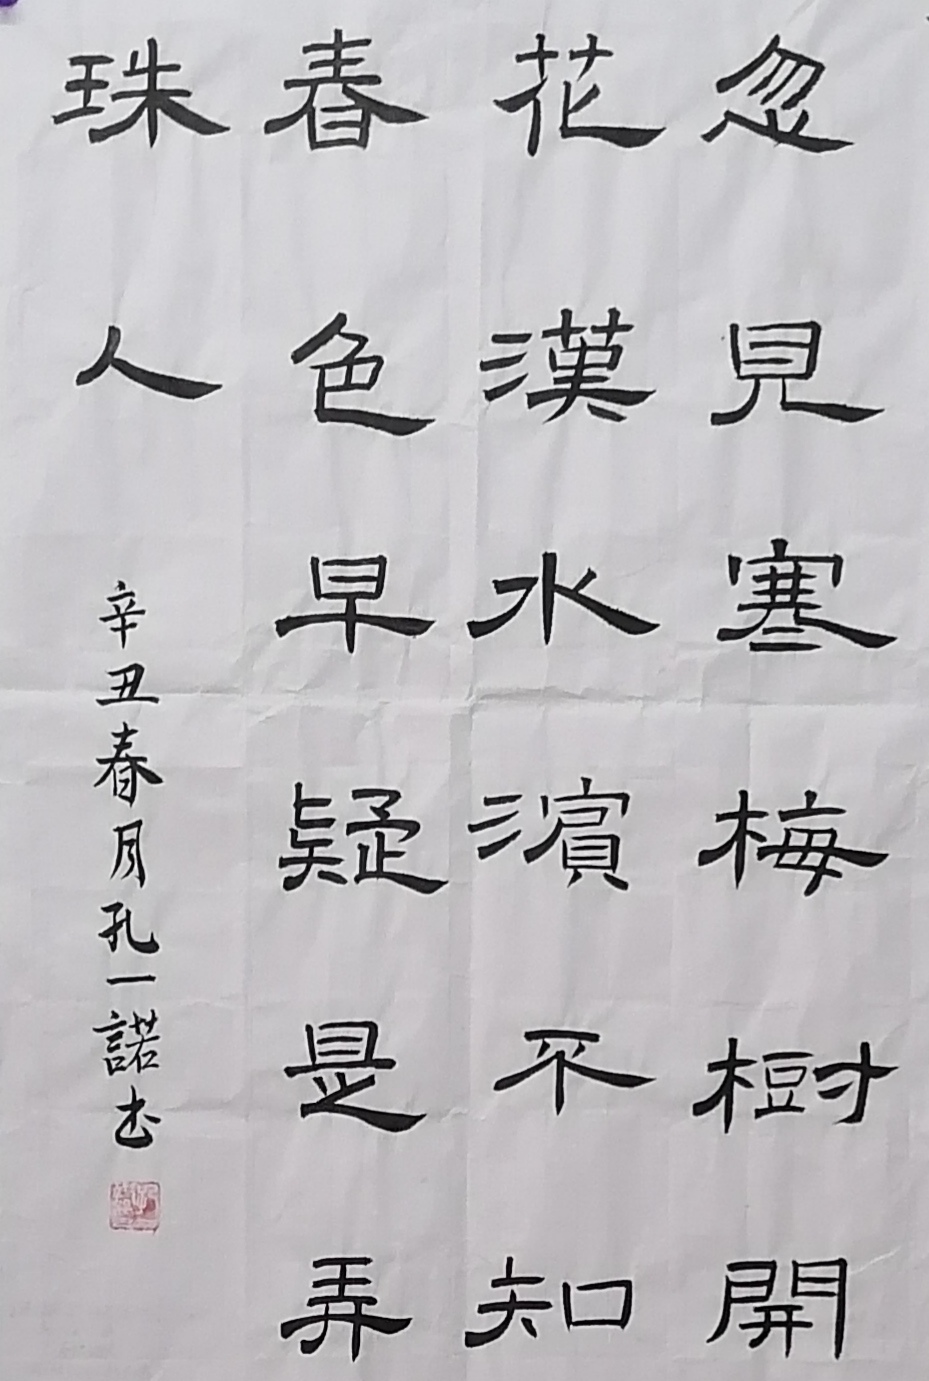 忽見寒梅樹開
花漢水濱不知
春色早疑是弄
珠人
辛丑春月孔一諾书